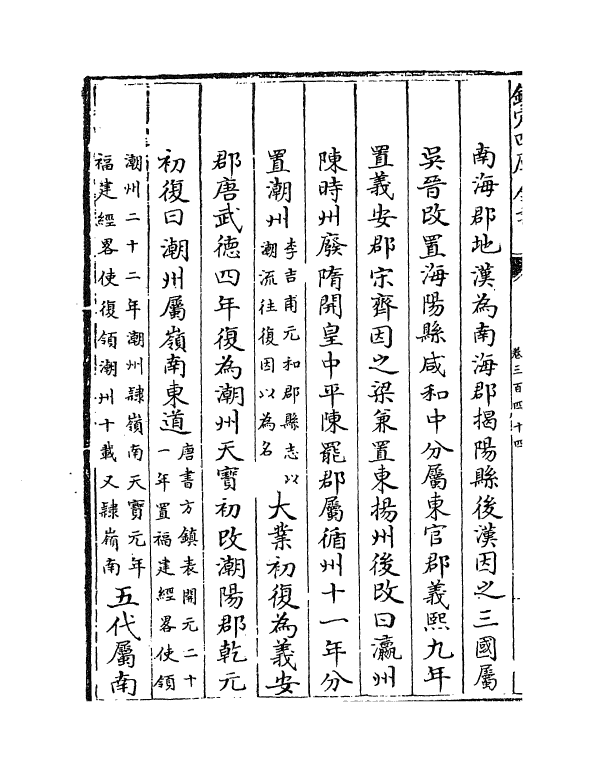 欽定四庫全書
卷三百四十四
南海郡地漢為南海郡揭陽縣後漢因之三國屬
吳晉改置海陽縣咸和中分屬東官郡義熙九年
置義安郡宋齊因之梁兼置東揚州後改曰瀛州
陳時州廢隋開皇中平陳罷郡屬循州十一年分
置潮州李吉甫元和郡縣志以
潮流往復因以為名大業初復為義安
郡唐武德四年復為潮州天寶初改潮陽郡乾元
初復曰潮州屬嶺南東道唐書方鎮表開元二十
一年置福建經畧使領
潮州二十二年潮州隸嶺南天寶元年
福建經畧使復領潮州十載又隸嶺南五代屬南